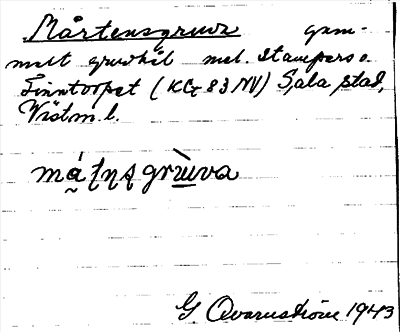 Mårtensgruva gam-
malt gruvhål mel. Stampers o.
Finntorpet (KC 83 NV) Sala stad,
Västm. l.
G Qvarnström 1943